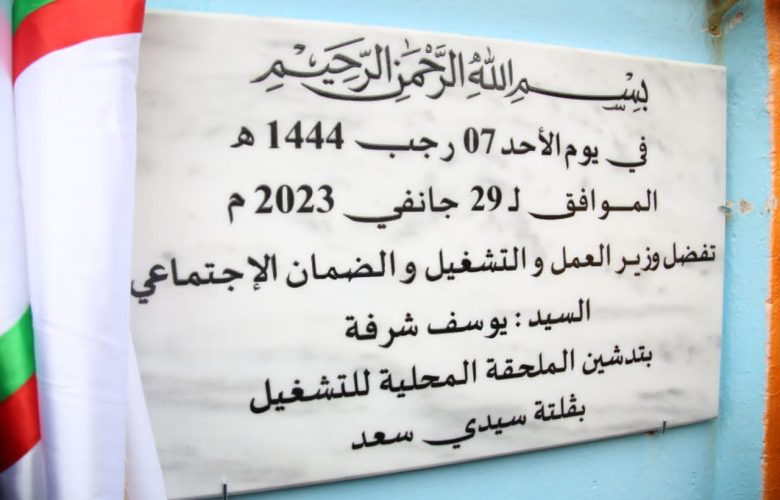 بِسْمِ اللهِ الرَّحْمَنِ الرَّحِيمِ
في يوم الأحد 07 رجب 1444 هـ
الموافق لـ 29 جانفي 2023 م
تفضل وزير العمل و التشغيل و الضمان الإجتماعي
السيد : يوسف شرفة
بتدشين الملحقة المحلية للتشغيل
بڤلتة سيدي سعد